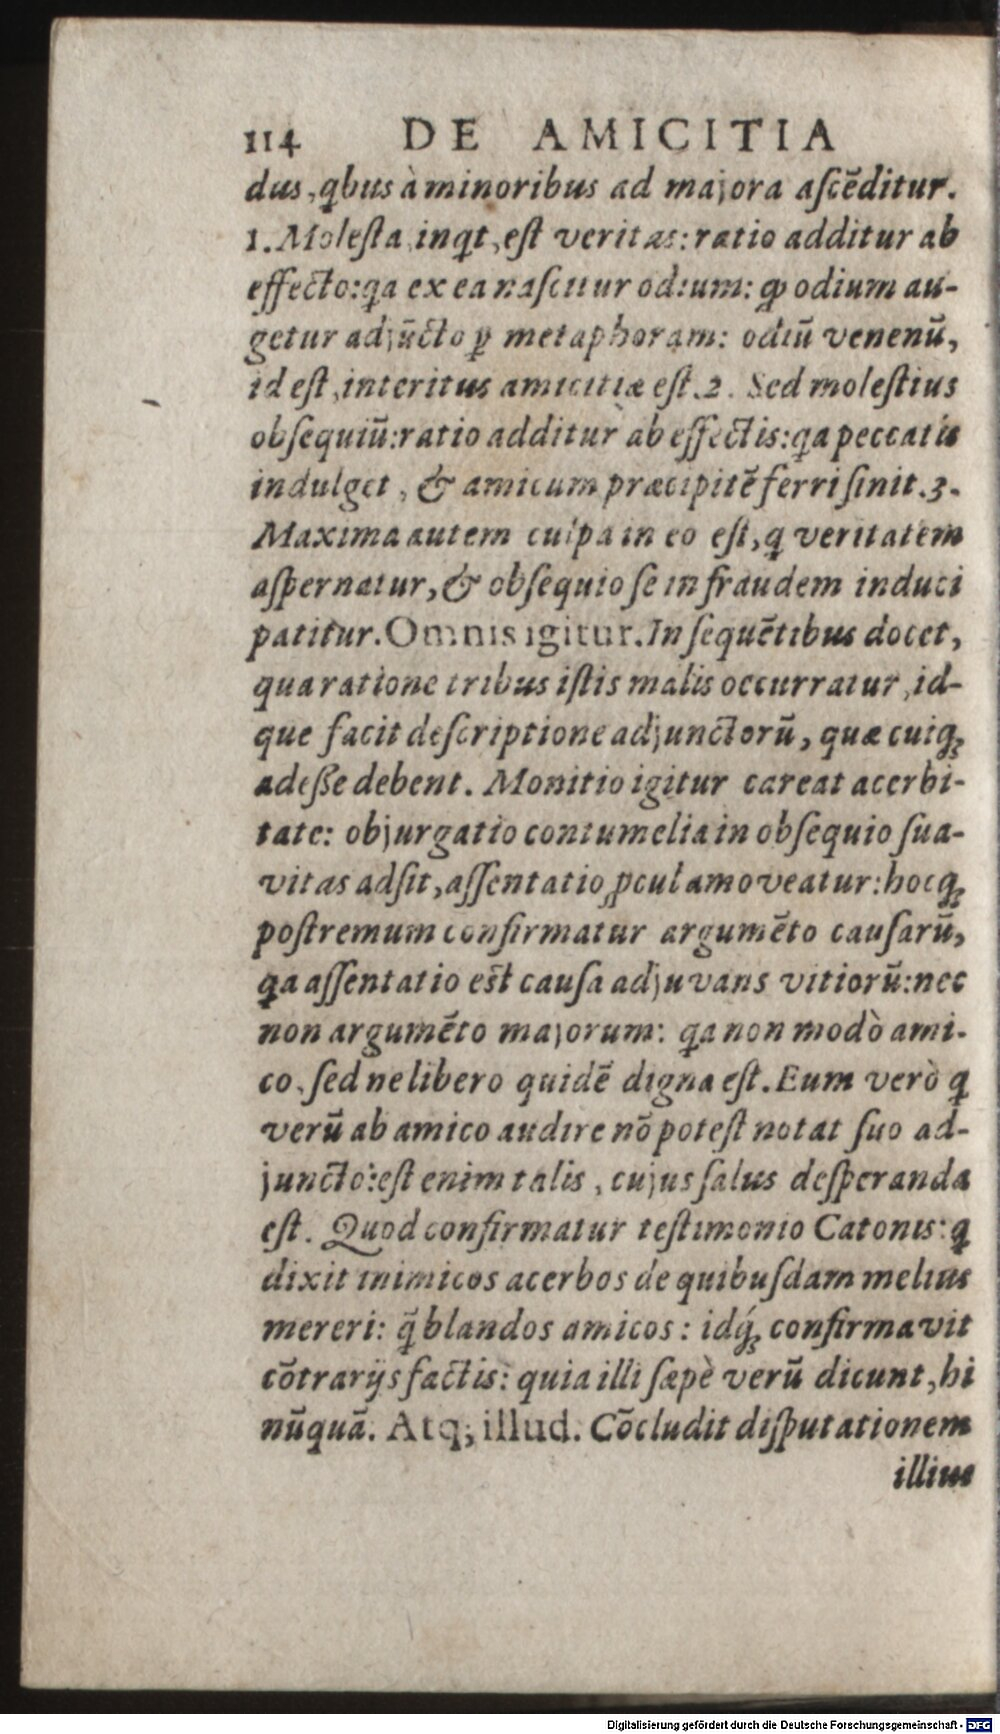 114 DE AMICITIA
dus, qbus à minoribus ad majora aſcẽditur.
1. Moleſta, inqt, eſt veritas: ratio additur ab
effecto: qa ex ea naſcitur odium: ꝙ odium au-
getur adjũcto ꝑ metaphoram: odiũ venenũ,
id eſt, interitus amicitiæ eſt. 2. Sed moleſtius
obſequiũ: ratio additur ab effectis: qa peccatis
indulget, & amicum præcipitẽ ferri ſinit. 3.
Maxima autem culpa in eo eſt, q veritatem
aſpernatur, & obſequio ſe in fraudem induci
patitur. Omnis igitur. In ſequẽtibus docet,
qua ratione tribus iſtis malis occurratur, id-
que facit deſcriptione adjunctorũ, quæ cuiqꝫ
adeſſe debent. Monitio igitur careat acerbi-
tate: objurgatio contumelia in obſequio ſua-
vitas adſit, aſſentatio ꝓcul amoveatur: hocqꝫ
poſtremum confirmatur argumẽto cauſarũ,
qa aſſentatio eſt cauſa adjuvans vitiorũ: nec
non argumẽto majorum: qa non modò ami-
co, ſed ne libero quidẽ digna eſt. Eum verò q
verũ ab amico audire nõ poteſt notat ſuo ad-
juncto: eſt enim talis, cujus ſalus deſperanda
eſt. Quod confirmatur teſtimonio Catonis: q
dixit inimicos acerbos de quibuſdam melius
mereri: q̃ blandos amicos: idq́ꝫ confirmavit
cõtrarijs factis: quia illi ſæpè verũ dicunt, hi
nũquã. Atq; illud. Cõcludit diſputationem
illius
Digitalisierung gefördert durch die Deutsche Forschungsgemeinschaft - DFG